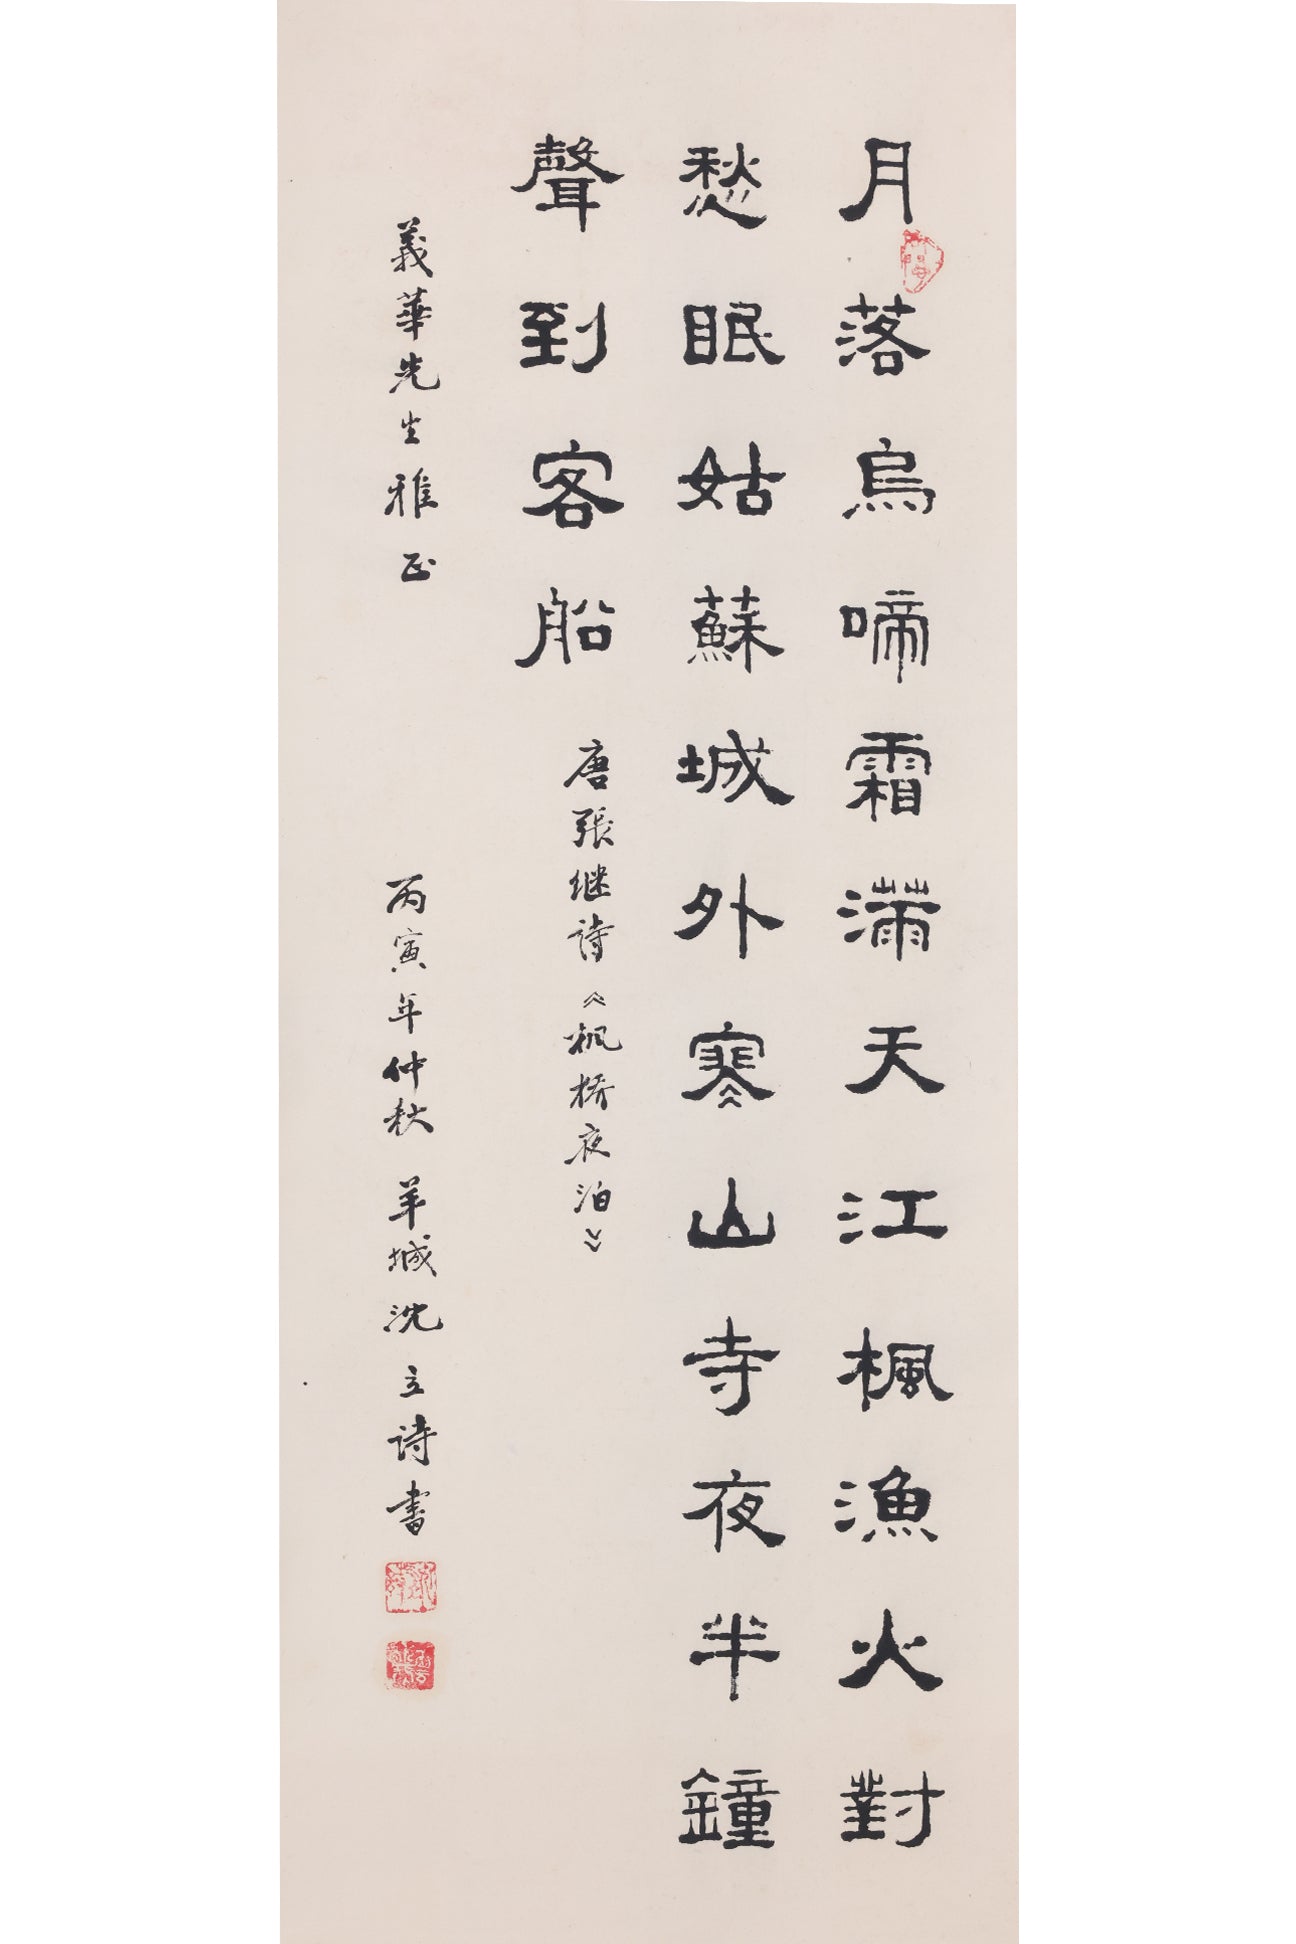 月落烏啼霜滿天江楓漁火對
愁眠姑蘇城外寒山寺夜半鐘
聲到客船
唐張继詩《楓橋夜泊》
義華先生雅正
丙寅年仲秋 羊城沈立詩書